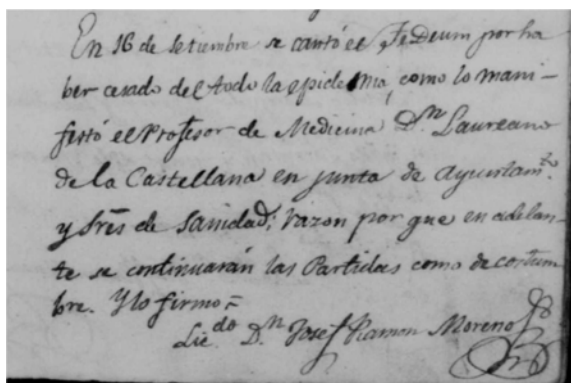 En 16 de Setiembre se cantó el Te Deum por ha
ber cesado del todo la epidemia, como lo mani-
festó el Profesor de Medicina Dⁿ. Laureano
de la Castellana en junta de ayuntamᵗᵒ.
y Sres de Sanidad; razon por que en adelan-
te se continuarán las Partidas como de costum
bre. Y lo firmo=
Licᵈᵒ Dⁿ Josef Ramon Moreno